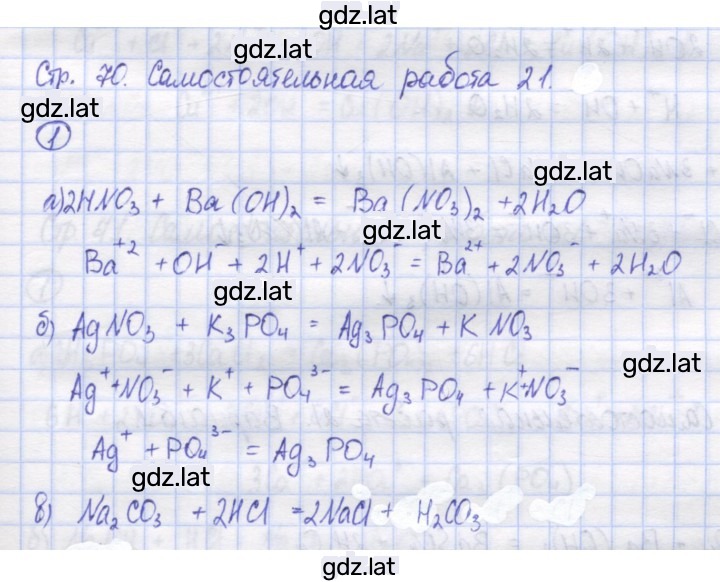 gdz.lat
gdz.lat
Стр. 70. Самостоятельная работа 21.
gdz.lat
1
gdz.lat
а) 2HNO₃ + Ba(OH)₂ = Ba(NO₃)₂ + 2H₂O
Ba⁺² + OH⁻ + 2H⁺ + 2NO₃⁻ = Ba²⁺ + 2NO₃⁻ + 2H₂O
gdz.lat
б) AgNO₃ + K₃PO₄ = Ag₃PO₄ + KNO₃
gdz.lat
Ag⁺ + NO₃⁻ + K⁺ + PO₄³⁻ = Ag₃PO₄ + K⁺ + NO₃⁻
Ag⁺ + PO₄³⁻ = Ag₃PO₄
gdz.lat
в) Na₂CO₃ + 2HCl = 2NaCl + H₂CO₃
gdz.lat